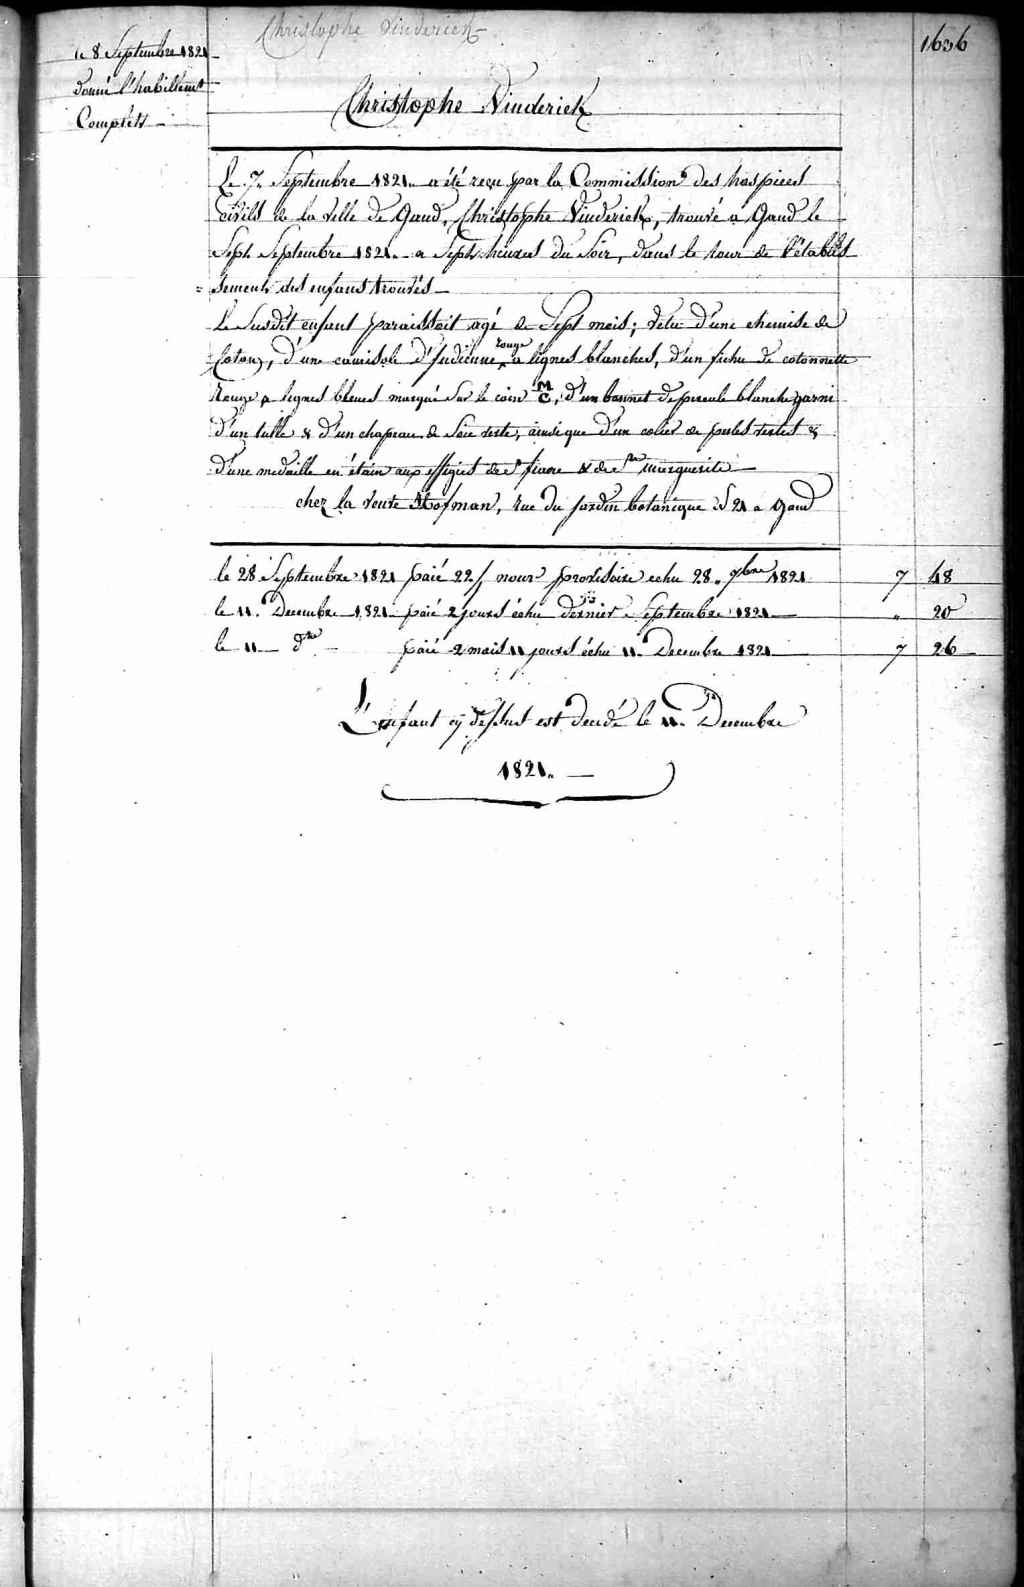 Christophe Vinderick
1656
le 8 Septembre 1821
donné l'habillemt
Complett
Christophe Vinderick
Le 7. Septembre 1821. a été reçu par la Commission des hospices
Civils de la Ville de Gand, Christophe Vinderick, trouvé a Gand le
Sept Septembre 1821. a Sept heures du Soir, dans le tour de l'établis
= sement des enfans trouvés
Le Susdit enfant paraissoit agé de Sept mois; vetu d'une chemise de
Coton, d'une camisole d'Indienne rouge a lignes blanches, d'un fichu de cotonnette
Rouge a lignes bleues marqué Sur le coin M C, d'un bonnet de percale blanche garni
d'un tulle & d'un chapeau de Soie verte, ainsi que d'un colier de perles vertes &
d'une medaille en étain aux effigies de St fiacre & de Ste Marguerite
chez la veuve Hofman, rue du jardin botanique N 21 a Gand
le 28 Septembre 1821 paié 22/ nour provisoire echu 28. 7bre 1821 7 48
le 11. Decembre 1821 paié 2 jours échu dernier Septembre 1821 " 20
le 11 do paié 2 mois 11 jours échu 11. Decembre 1821 7 26
L'enfant cÿ dessus est decedé le 11. Decembre
1821.